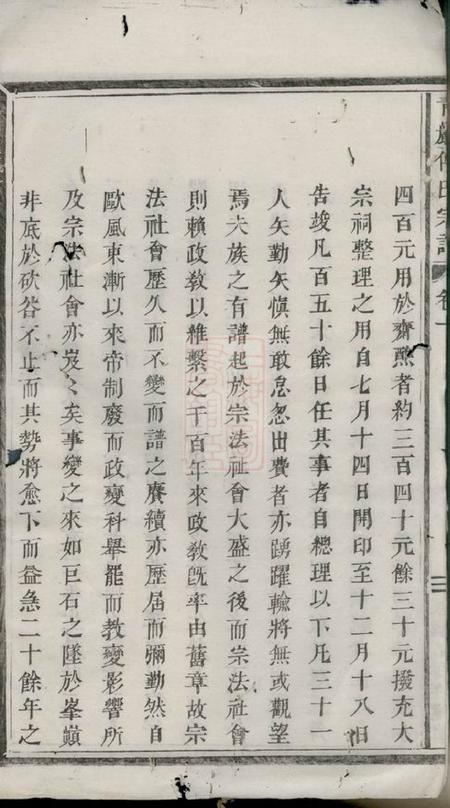 四百元用於齋煑者約三百四十元餘三十元撥充大
宗祠整理之用自七月十四日開印至十二月十八日
告竣凡百五十餘日任其事者自總理以下凡三十一
人矢勤矢慎無敢怠忽出費者亦踴躍輸將無或觀望
焉夫族之有譜起於宗法社會大盛之後而宗法社會
則賴政敎以維繫之千百年來政敎旣率由舊章故宗
法社會歷久而不變而譜之賡續亦歷屆而彌勤然自
歐風東漸以來帝制廢而政變科舉罷而教變影響所
及宗法社會亦岌〻矣事變之來如巨石之墜於峯巔
非底於砍咎不止而其勢將愈下而益急二十餘年之
氏宗譜
卷一